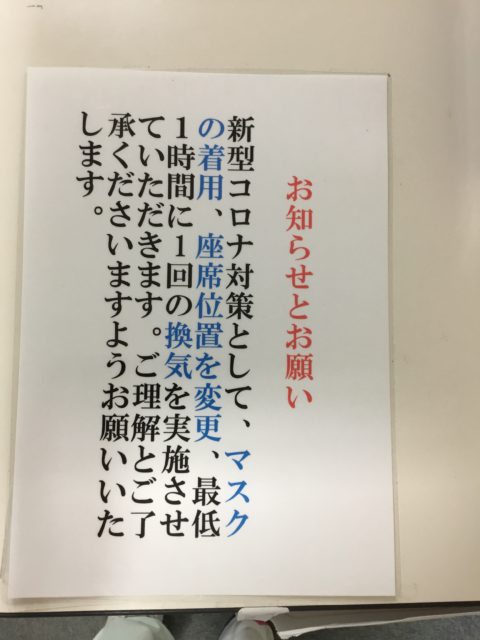 お知らせとお願い
新型コロナ対策として、マスク
の着用、座席位置を変更、最低
１時間に１回の換気を実施させ
ていただきます。ご理解とご了
承くださいますようお願いいた
します。